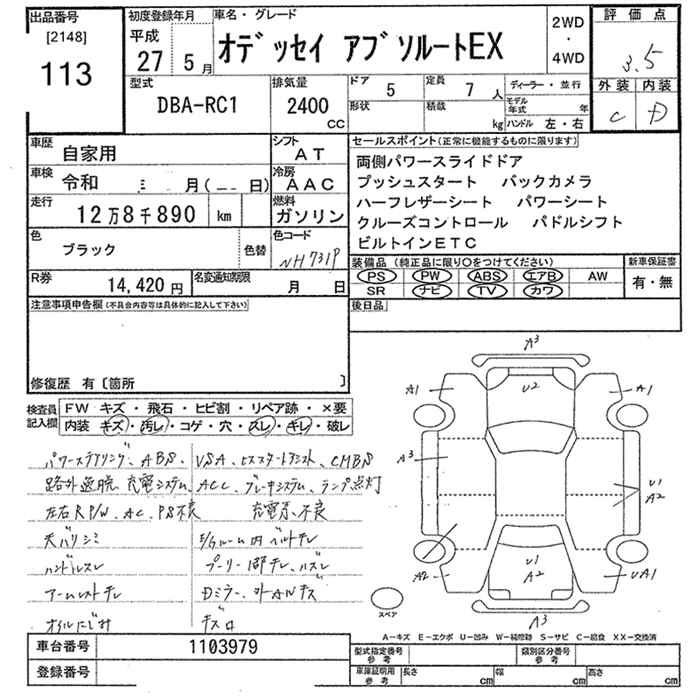 出品番号
[2148]
113
初度登録年月
平成
27年 5月
車名・グレード
オデッセイ アブソルートEX
2WD
・
4WD
評価点
3.5
外装 内装
C D
型式
DBA-RC1
排気量
2400
cc
ドア 5
定員 7人
形状
積載 kg
ディーラー・並行
モデル年式 年
ハンドル 左・右
車歴
自家用
シフト
AT
車検
令和 三 月(ーー日)
冷房
AAC
走行
12万8千890 km
燃料
ガソリン
色
ブラック
色替
色コード
NH731P
R券
14,420円
名変通知期限
月 日
セールスポイント(正常に機能するものに限ります)
両側パワースライドドア
プッシュスタート バックカメラ
ハーフレザーシート パワーシート
クルーズコントロール パドルシフト
ビルトインETC
装備品(純正品に限り○をつけてください)
PS PW ABS エアB AW
SR ナビ TV カワ
新車保証書
有・無
後日品
注意事項申告欄(不具合内容等は具体的に記入して下さい)
修復歴 有〔箇所 〕
検査員
記入欄
FW キズ・飛石・ヒビ割・リペア跡・×要
内装 キズ・汚レ・コゲ・穴・スレ・キレ・破レ
パワーステアリング、ABS、VSA、ヒルスタートアシスト、CMBS
路外逸脱、充電システム、ACC、ブレーキシステム、ランプ点灯
左右RP/W、AC、PS不良 充電系不良
天バリシミ E/gルーム内ベルトキレ
ハンドルスレ プーリー部キレ、ハズレ
アームレストキレ Dミラー、外ANキズ
オイルにじみ キズ口
A3
A1 U2 A1
A3 U1
A2
A2 U1
A2 UA1
A3
スペア
A-キズ E-エクボ U-凹み W-補修跡 S-サビ C-腐食 XX-交換済
車台番号 1103979
登録番号
型式指定番号
参考
類別区分番号
参考
車庫証明用
参考
長さ cm 幅 cm 高さ cm